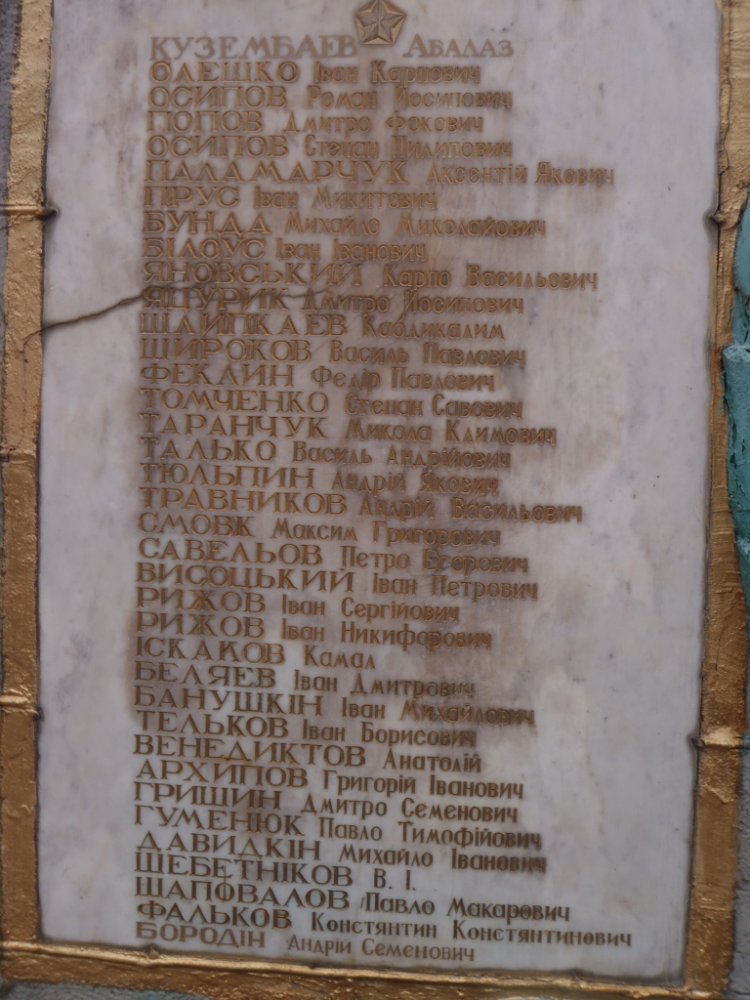 КУЗЕМБАЕВ Абалаз
ОЛЕШКО Іван Карпович
ОСИПОВ Роман Йосипович
ПОПОВ Дмитро Фокович
ОСИПОВ Степан Пилипович
ПАЛАМАРЧУК Аксентій Якович
ПРУС Іван Микитович
БУНДА Михайло Миколайович
БІЛОУС Іван Іванович
ЯНОВСЬКИЙ Карпо Васильович
ЯЦУРИК Дмитро Йосипович
ШАЙПКАЕВ Кабдикалим
ШИРОКОВ Василь Павлович
ФЕКЛИН Федір Павлович
ТОМЧЕНКО Степан Савович
ТАРАНЧУК Микола Климович
ТАЛЬКО Василь Андрійович
ТЮЛЬПИН Андрій Якович
ТРАВНИКОВ Андрій Васильович
СМОВК Максим Григорович
САВЕЛЬОВ Петро Егорович
ВИСОЦЬКИЙ Іван Петрович
РИЖОВ Іван Сергійович
РИЖОВ Іван Никифорович
ІСКАКОВ Камал
БЕЛЯЕВ Іван Дмитрович
БАНУШКІН Іван Михайлович
ТЕЛЬКОВ Іван Борисович
ВЕНЕДИКТОВ Анатолій
АРХИПОВ Григорій Іванович
ГРИШИН Дмитро Семенович
ГУМЕНЮК Павло Тимофійович
ДАВИДКІН Михайло Іванович
ШЕБЕТНІКОВ В. І.
ШАПОВАЛОВ Павло Макарович
ФАЛЬКОВ Констянтин Констянтинович
БОРОДІН Андрій Семенович